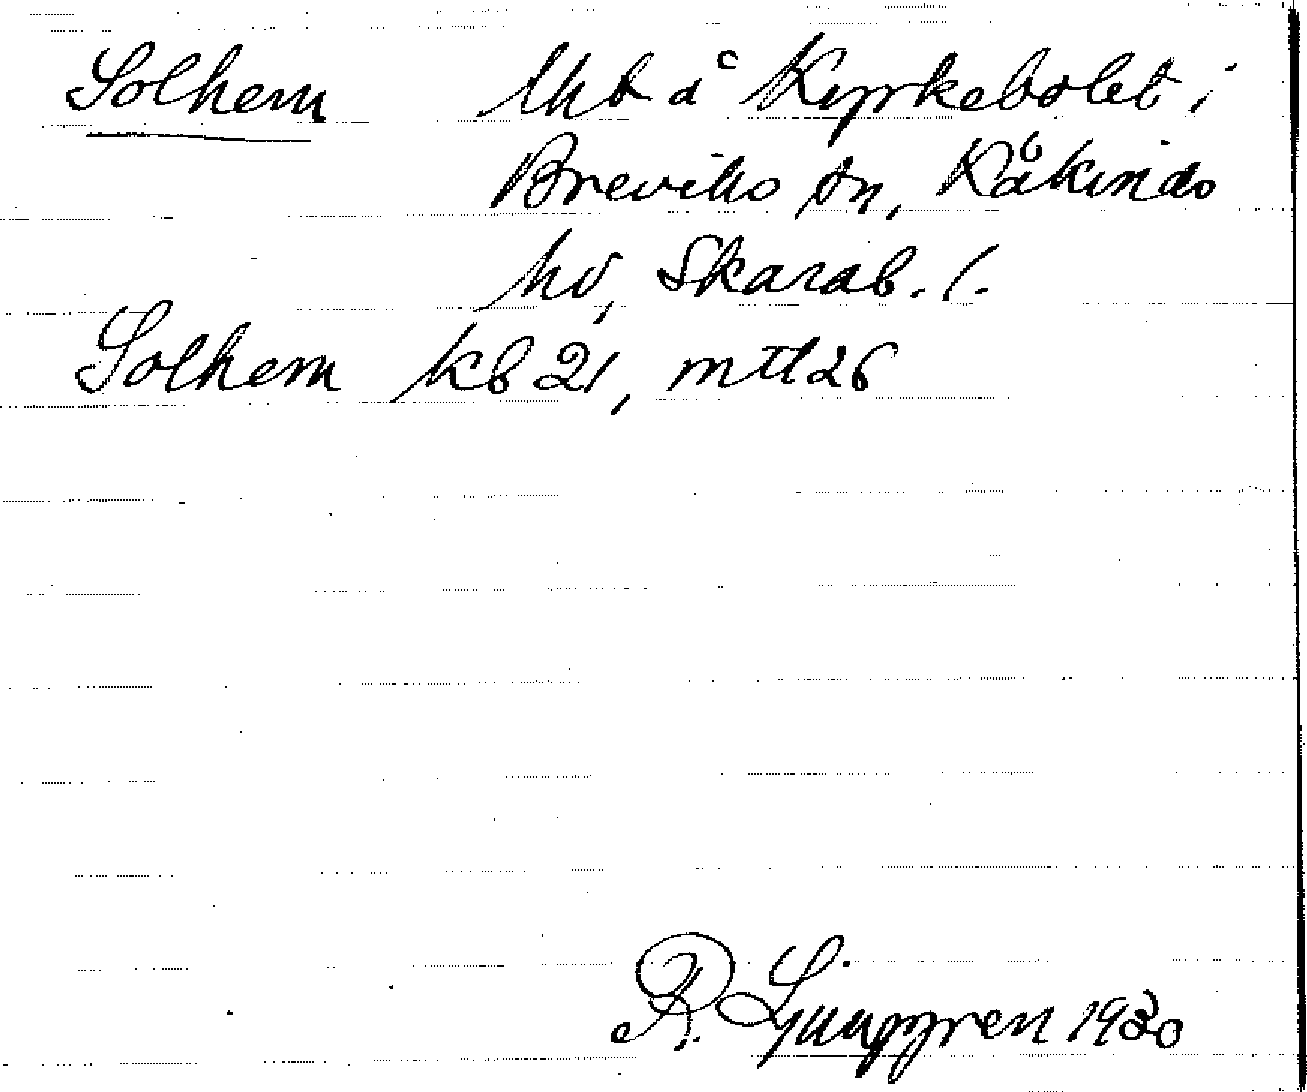 Solhem lht å Kyrkebolet i
Breviks sn, Kåkinds
hd, Skarab. l.
Solhem kb 21, mtl 26
R. Ljunggren 1930